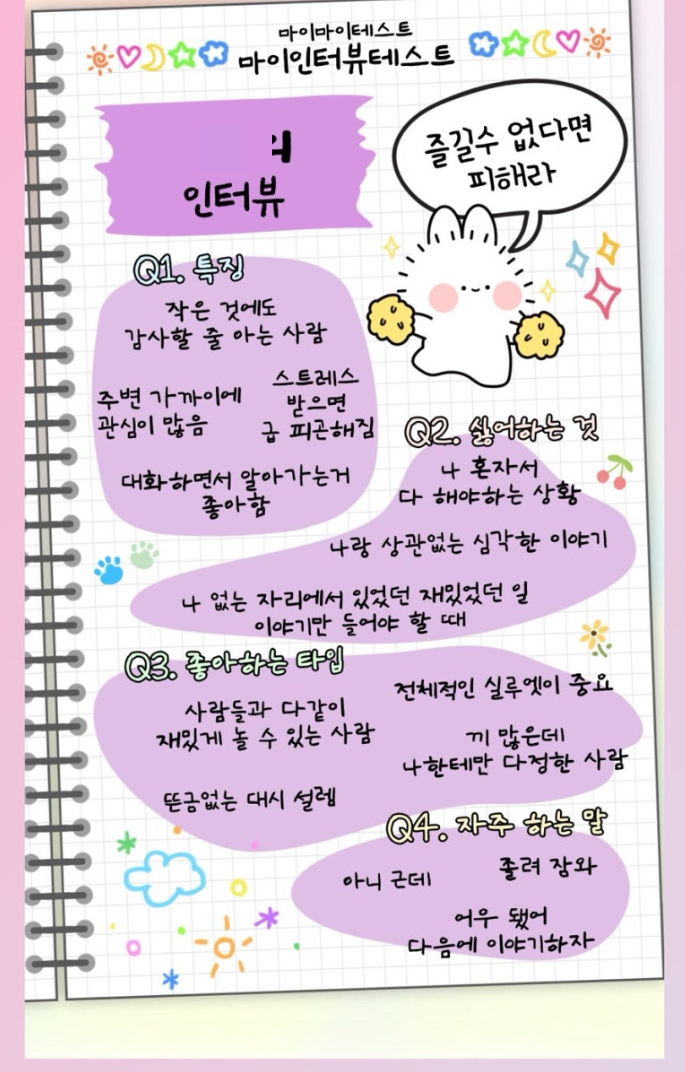 마이마이테스트
마이인터뷰테스트
인터뷰
즐길수 없다면
피해라
Q1. 특징
작은 것에도
감사할 줄 아는 사람
주변 가까이에
관심이 많음
스트레스
받으면
급 피곤해짐
대화하면서 알아가는거
좋아함
Q2. 싫어하는 것
나 혼자서
다 해야하는 상황
나랑 상관없는 심각한 이야기
나 없는 자리에서 있었던 재밌었던 일
이야기만 들어야 할 때
Q3. 좋아하는 타입
사람들과 다같이
재밌게 놀 수 있는 사람
전체적인 실루엣이 중요
끼 많은데
나한테만 다정한 사람
뜬금없는 대시 설렘
Q4. 자주 하는 말
아니 근데
졸려 잠와
어우 됐어
다음에 이야기하자